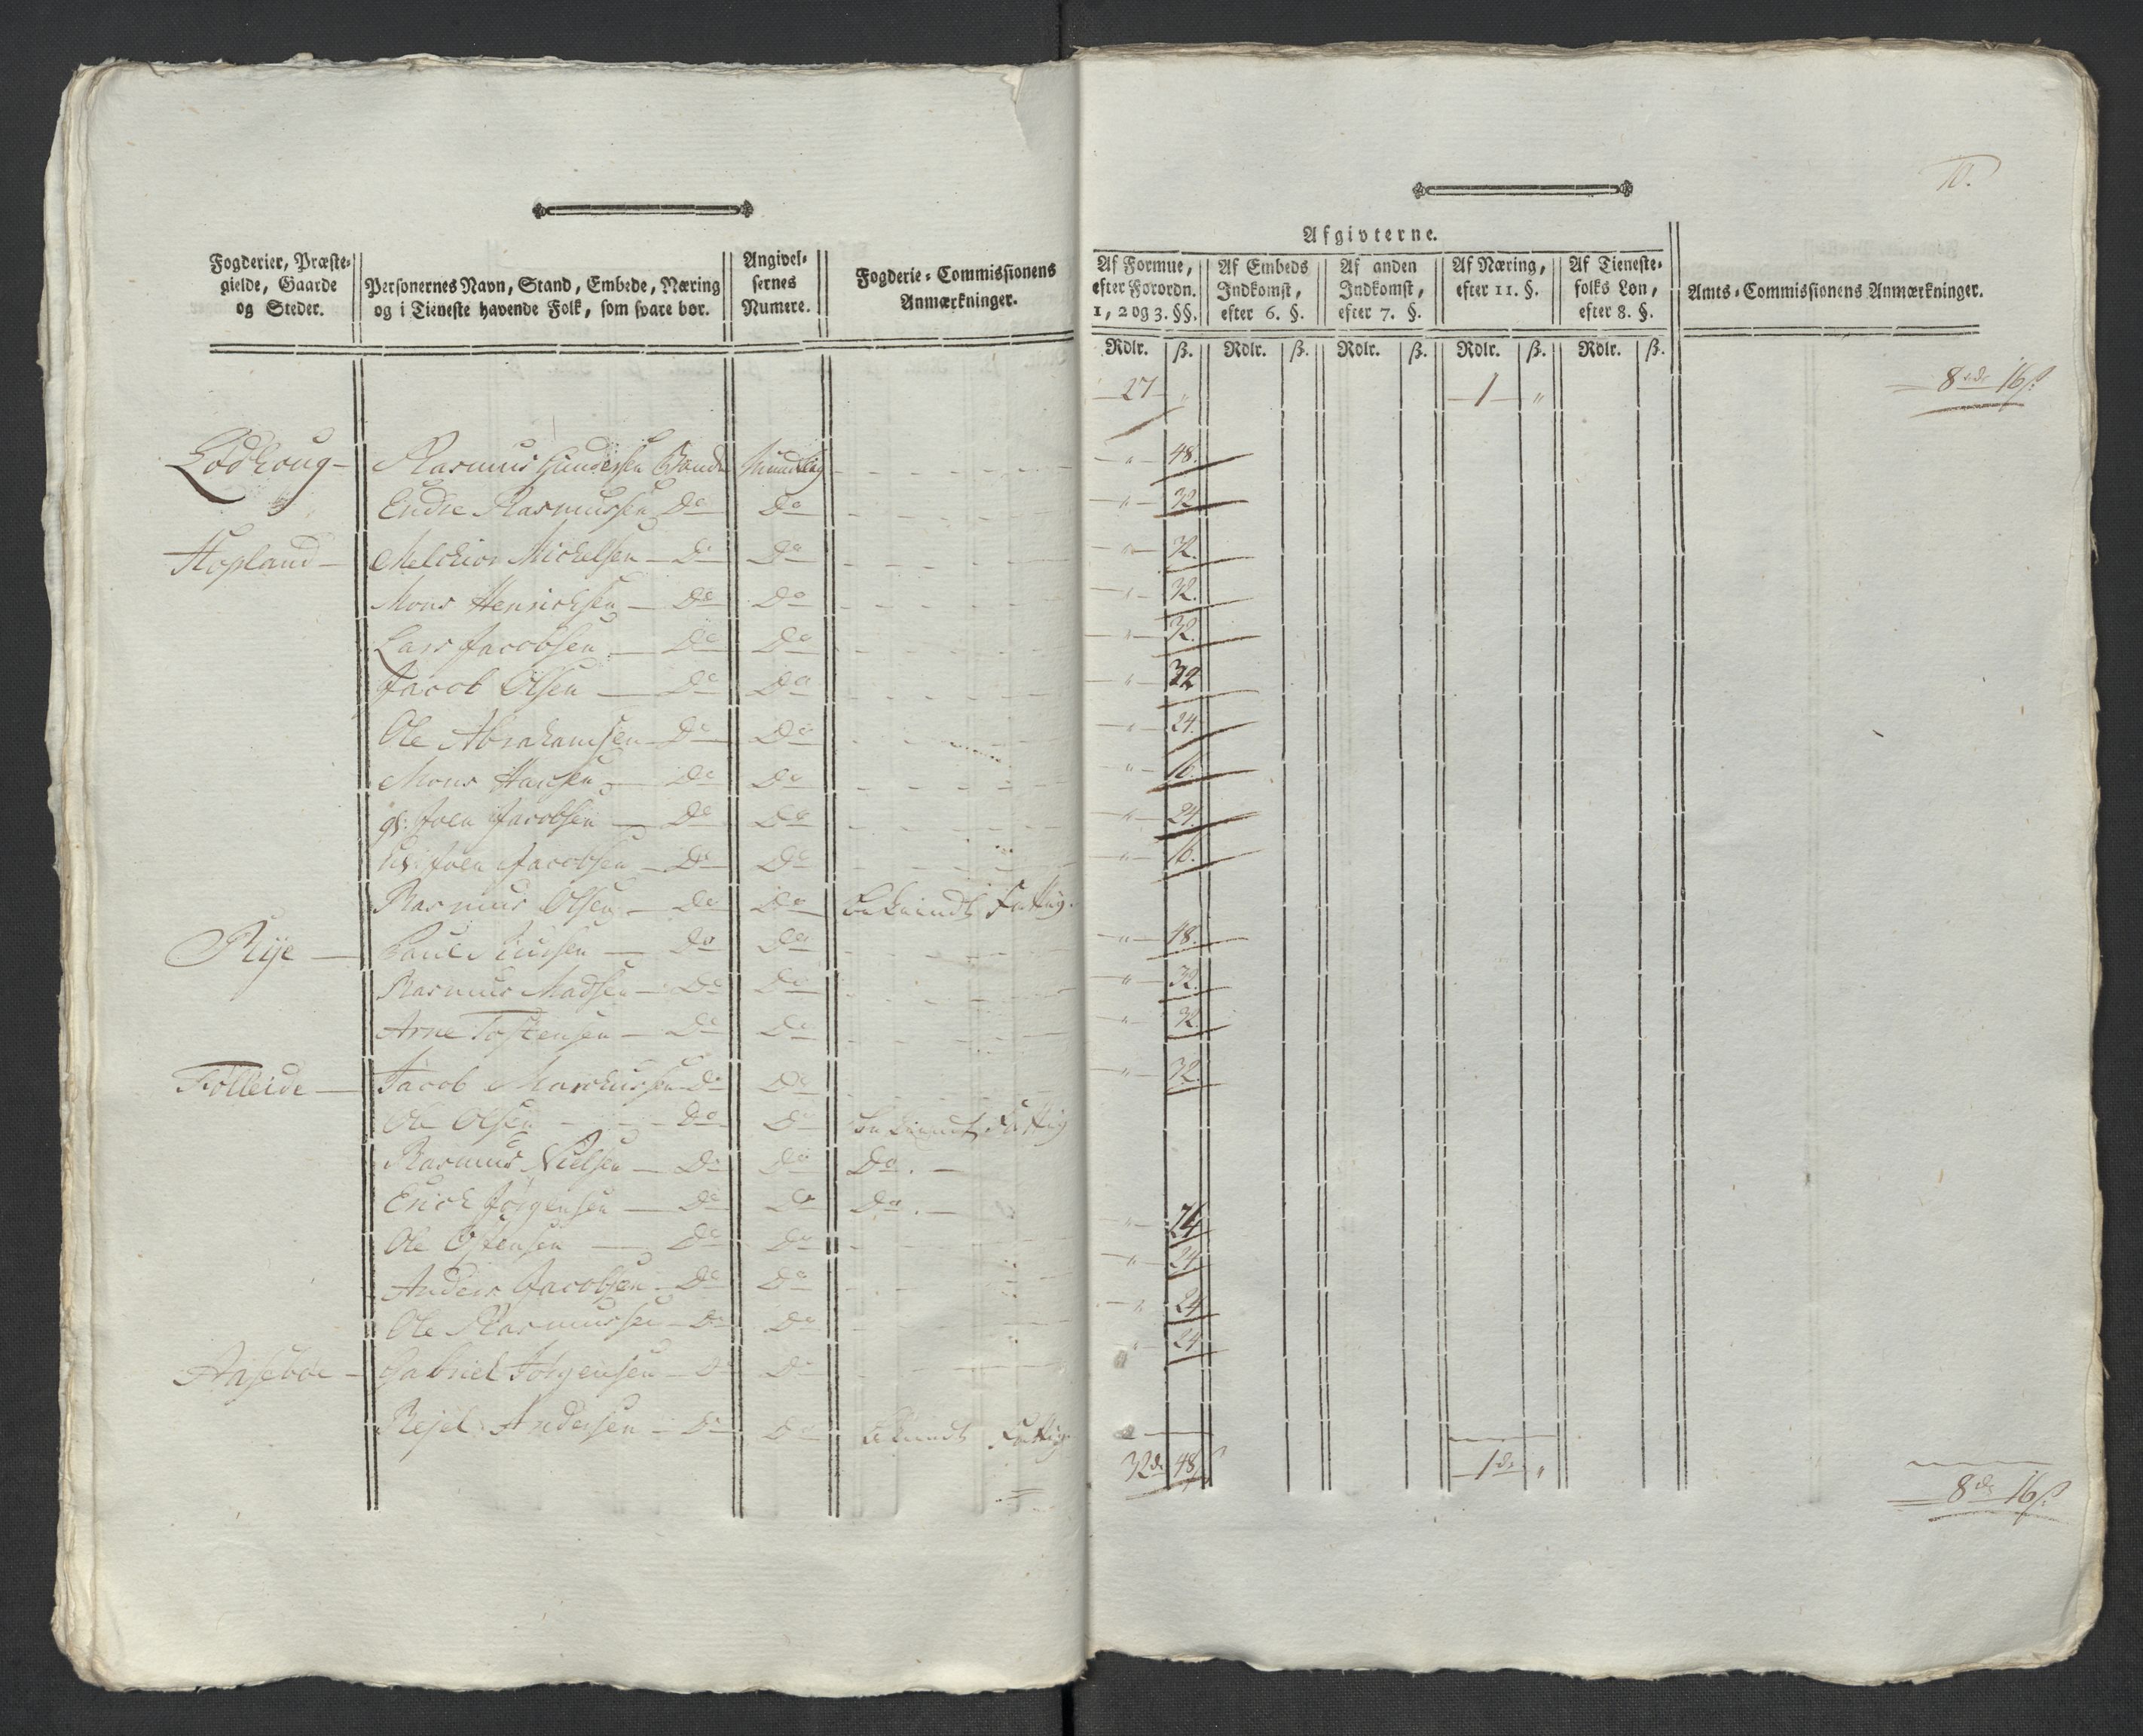 10.
Afgivterne.
Fogderier, Præste-
gielde, Gaarde
og Steder.
Personernes Navn, Stand, Embede, Næring
og i Tieneste havende Folk, som svare bør.
Angivel-
sernes
Numere.
Fogderie-Commissionens
Anmærkninger.
Af Formue,
efter Forordn.
1, 2 og 3. §§.
Af Embeds
Indkomst,
efter 6. §.
Af anden
Indkomst,
efter 7. §.
Af Næring,
efter 11. §.
Af Tieneste-
folks Løn,
efter 8. §.
Amts-Commissionens Anmærkninger.
Rdlr. ß. Rdlr. ß. Rdlr. ß. Rdlr. ß. Rdlr. ß.
27 " 1 " 8 rdr 16 ß
Lødhoug Rasmus Bonde Mundtlig " 48.
Endre Rasmussen Do Do " 32
Hopland Melchior Michelsen Do Do " 32.
Mons Henrichsen Do Do " 32.
Lars Jacobsen Do Do " 32.
Jacob Olsen Do Do " 32
Ole Abrahamsen Do Do " 24.
Mons Hansen Do Do " 16.
gl: Joen Jacobsen Do Do " 24.
Joen Jacobsen Do Do " 16.
Rasmus Olsen Do Do Fattig.
Rije Do Do " 48.
Rasmus Madsen Do Do " 32.
Arne Tostensen Do Do " 32.
Følleide Jacob Marchussen Do Do " 32.
Ole Olsen Do Do Fattig
Rasmus Nielsen Do Do Do.
Erich Jørgensen Do Do Do.
Ole Do Do " 24
Anders Jacobsen Do Do " 24
Ole Rasmussen Do Do " 24
Aasebøe Gabriel Jørgensen Do Do " 24
Andersen Do Do Fattig.
32 dr 48 ß 1 dr " 8 dr 16 ß